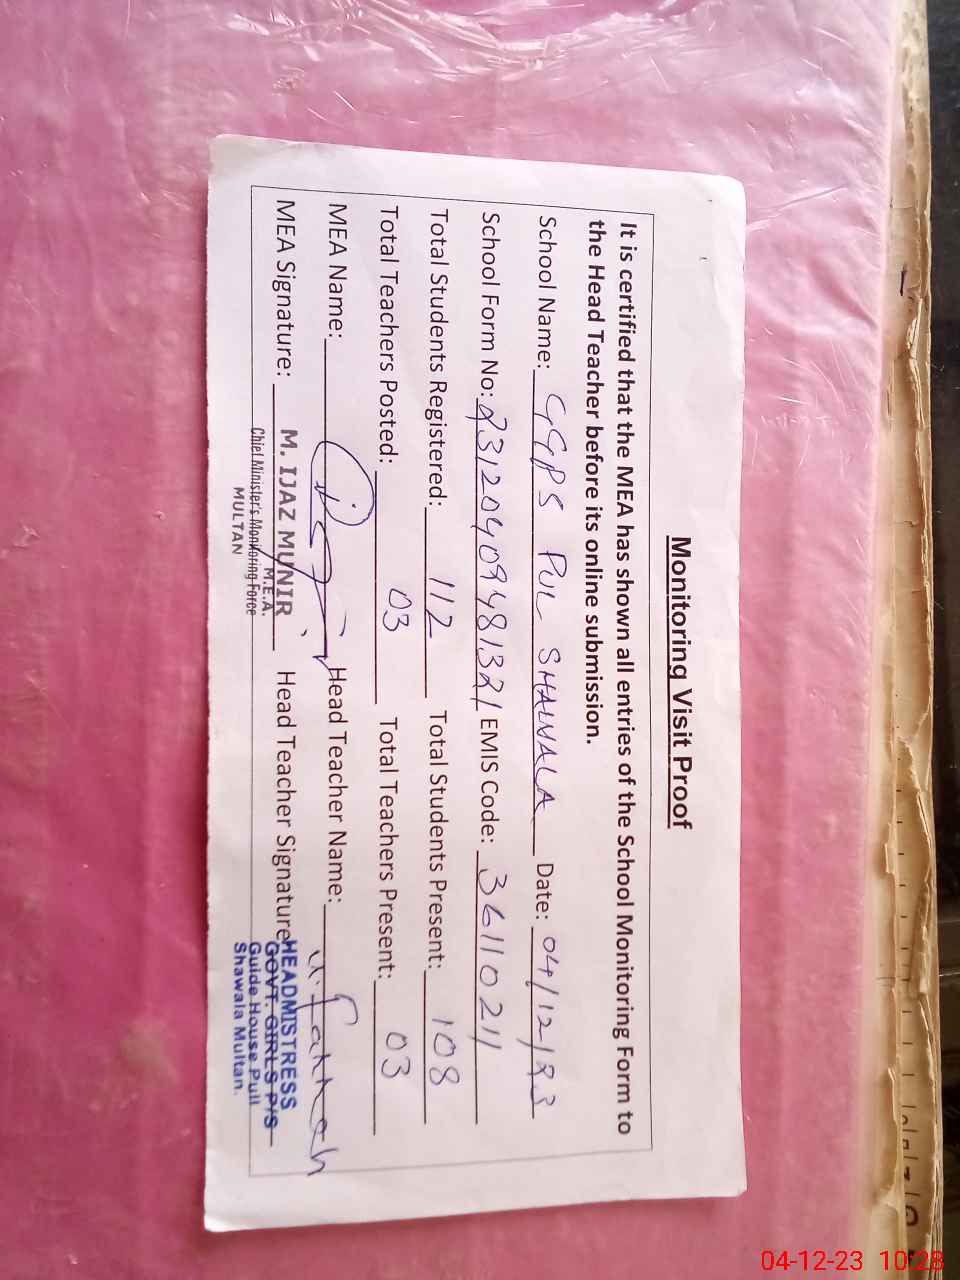 Monitoring Visit Proof
It is certified that the MEA has shown all entries of the School Monitoring Form to
the Head Teacher before its online submission.
School Name: GGPS PUL SHAWALA Date: 04/12/23
School Form No: 23120409481321 EMIS Code: 36110211
Total Students Registered: 112 Total Students Present: 108
Total Teachers Posted: 03 Total Teachers Present: 03
MEA Name: Head Teacher Name:
MEA Signature: Head Teacher Signature
M. IJAZ MUNIR
M.E.A.
Chief Minister's Monitoring Force
MULTAN
HEADMISTRESS
GOVT. GIRLS P/S
Guide House Pull
Shawala Multan.
04-12-23 10:28